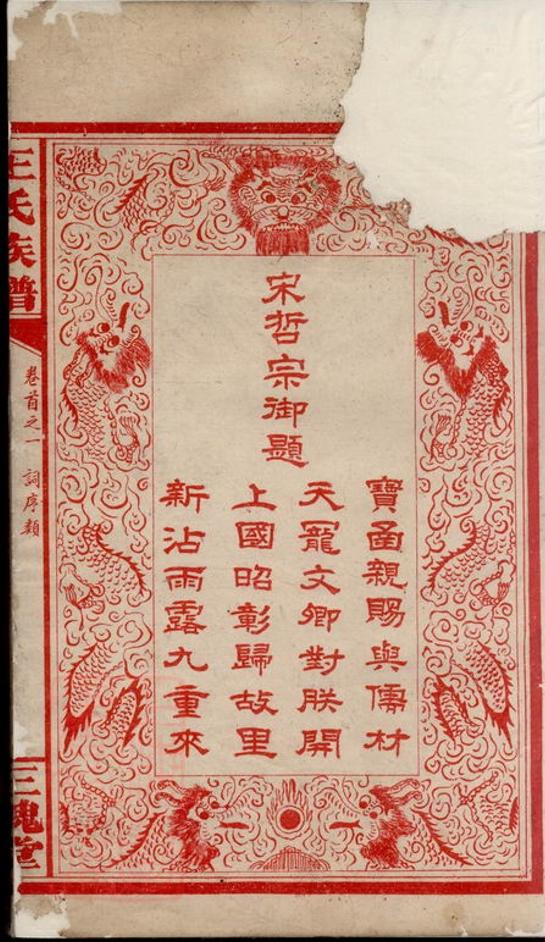 宋哲宗御題
寶函親賜與儒材
天寵文卿對朕開
上國昭彰歸故里
新沾雨露九重來
王氏族譜
卷首之一 詞序類
三槐堂